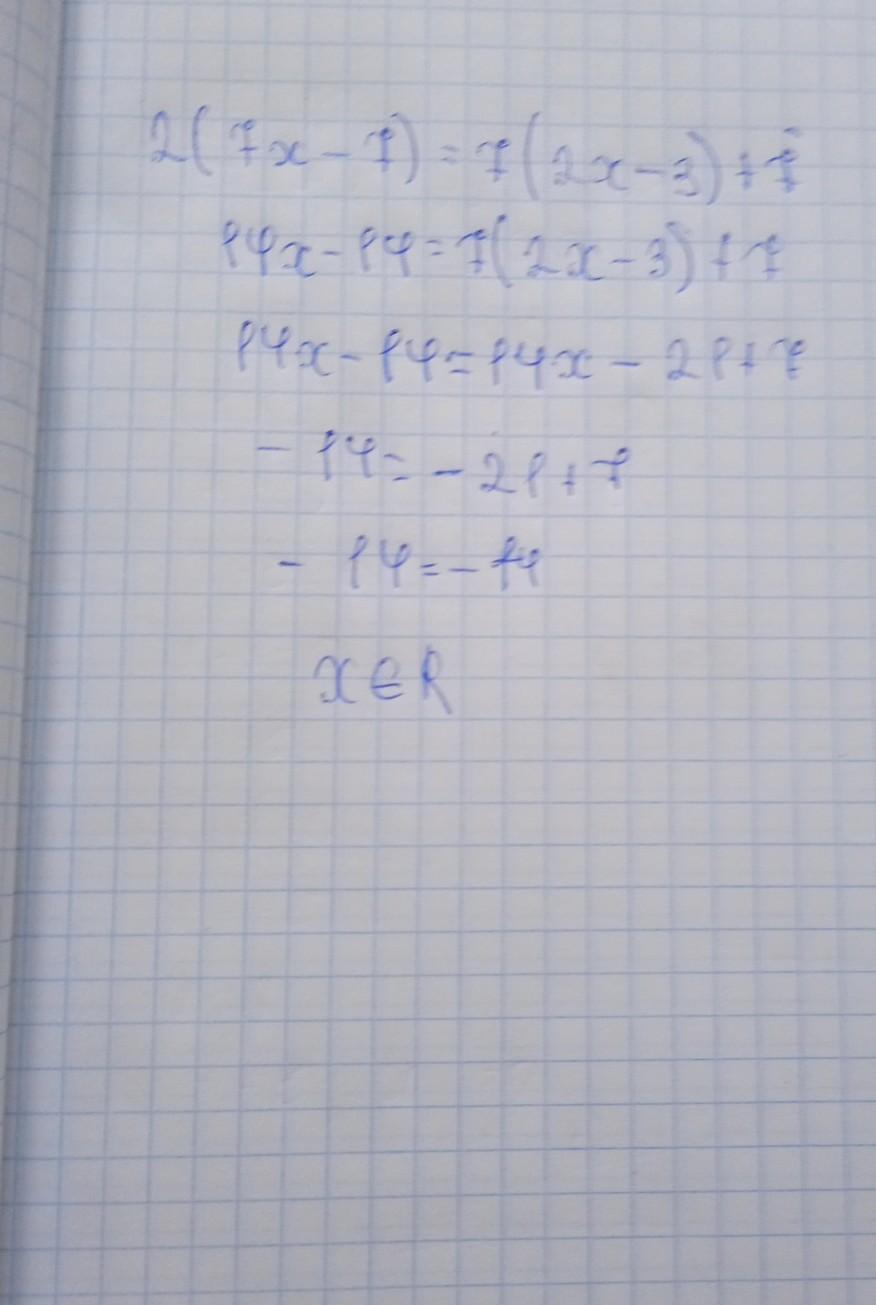 2(7x-7)=7(2x-3)+7
14x-14=7(2x-3)+7
14x-14=14x-21+7
-14=-21+7
-14=-14
x∈R